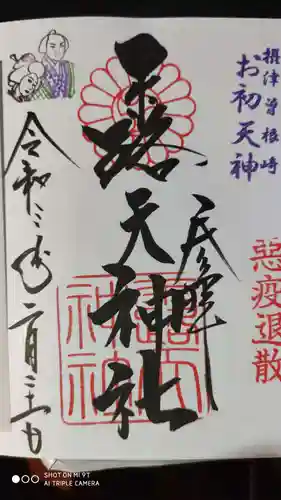 摂津曽根崎
お初天神
悪疫退散
露天神社
令和三年二月三十日
SHOT ON MI 9T
AI TRIPLE CAMERA